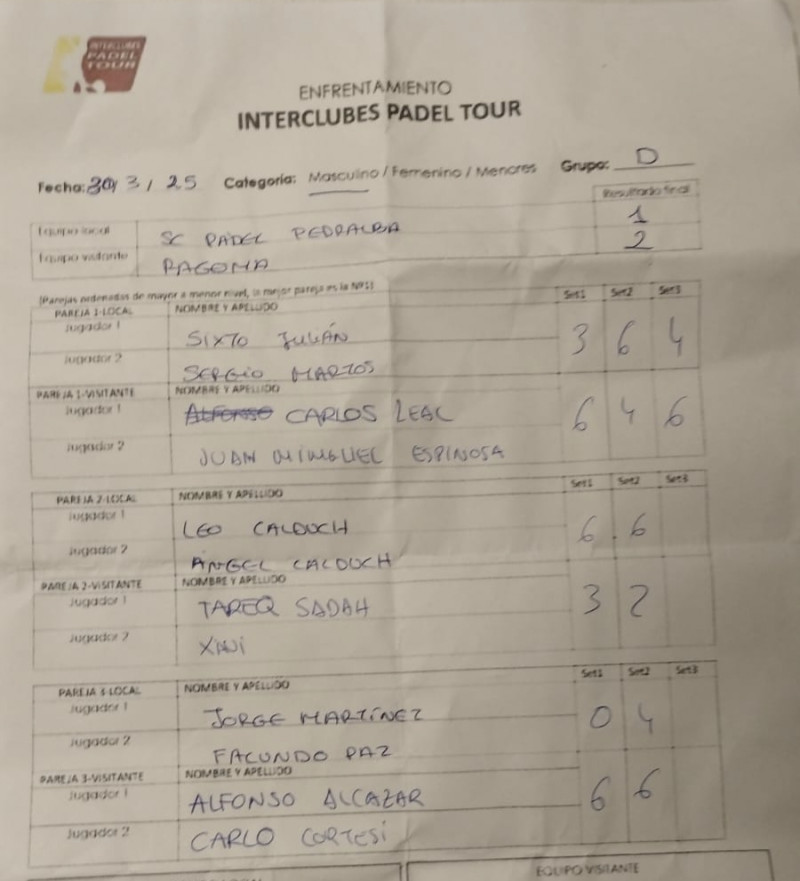 INTERCLUBES
PADEL
TOUR
ENFRENTAMIENTO
INTERCLUBES PADEL TOUR
Fecha: 30/ 3 / 25 Categoría: Masculino / Femenino / Menores Grupo: D
Resultado final
Equipo local SC PADEL PEDRALBA 1
Equipo visitante PAGOMA 2
(Parejas ordenadas de mayor a menor nivel, la mejor pareja es la Nº1)
PAREJA 1-LOCAL NOMBRE Y APELLIDO Set1 Set2 Set3
Jugador 1 SIXTO JULIÁN 3 6 4
Jugador 2 SERGIO MARTOS
PAREJA 1-VISITANTE NOMBRE Y APELLIDO
Jugador 1 ALFONSO CARLOS LEAL 6 4 6
Jugador 2 JUAN MIMGUEL ESPINOSA
PAREJA 2-LOCAL NOMBRE Y APELLIDO Set1 Set2 Set3
Jugador 1 LEO CALDUCH 6 6
Jugador 2 ÁNGEL CALDUCH
PAREJA 2-VISITANTE NOMBRE Y APELLIDO
Jugador 1 TAREQ SADAH 3 2
Jugador 2 XAVI
PAREJA 3-LOCAL NOMBRE Y APELLIDO Set1 Set2 Set3
Jugador 1 JORGE MARTÍNEZ 0 4
Jugador 2 FACUNDO PAZ
PAREJA 3-VISITANTE NOMBRE Y APELLIDO
Jugador 1 ALFONSO ALCAZAR 6 6
Jugador 2 CARLO CORTESI
EQUIPO VISITANTE